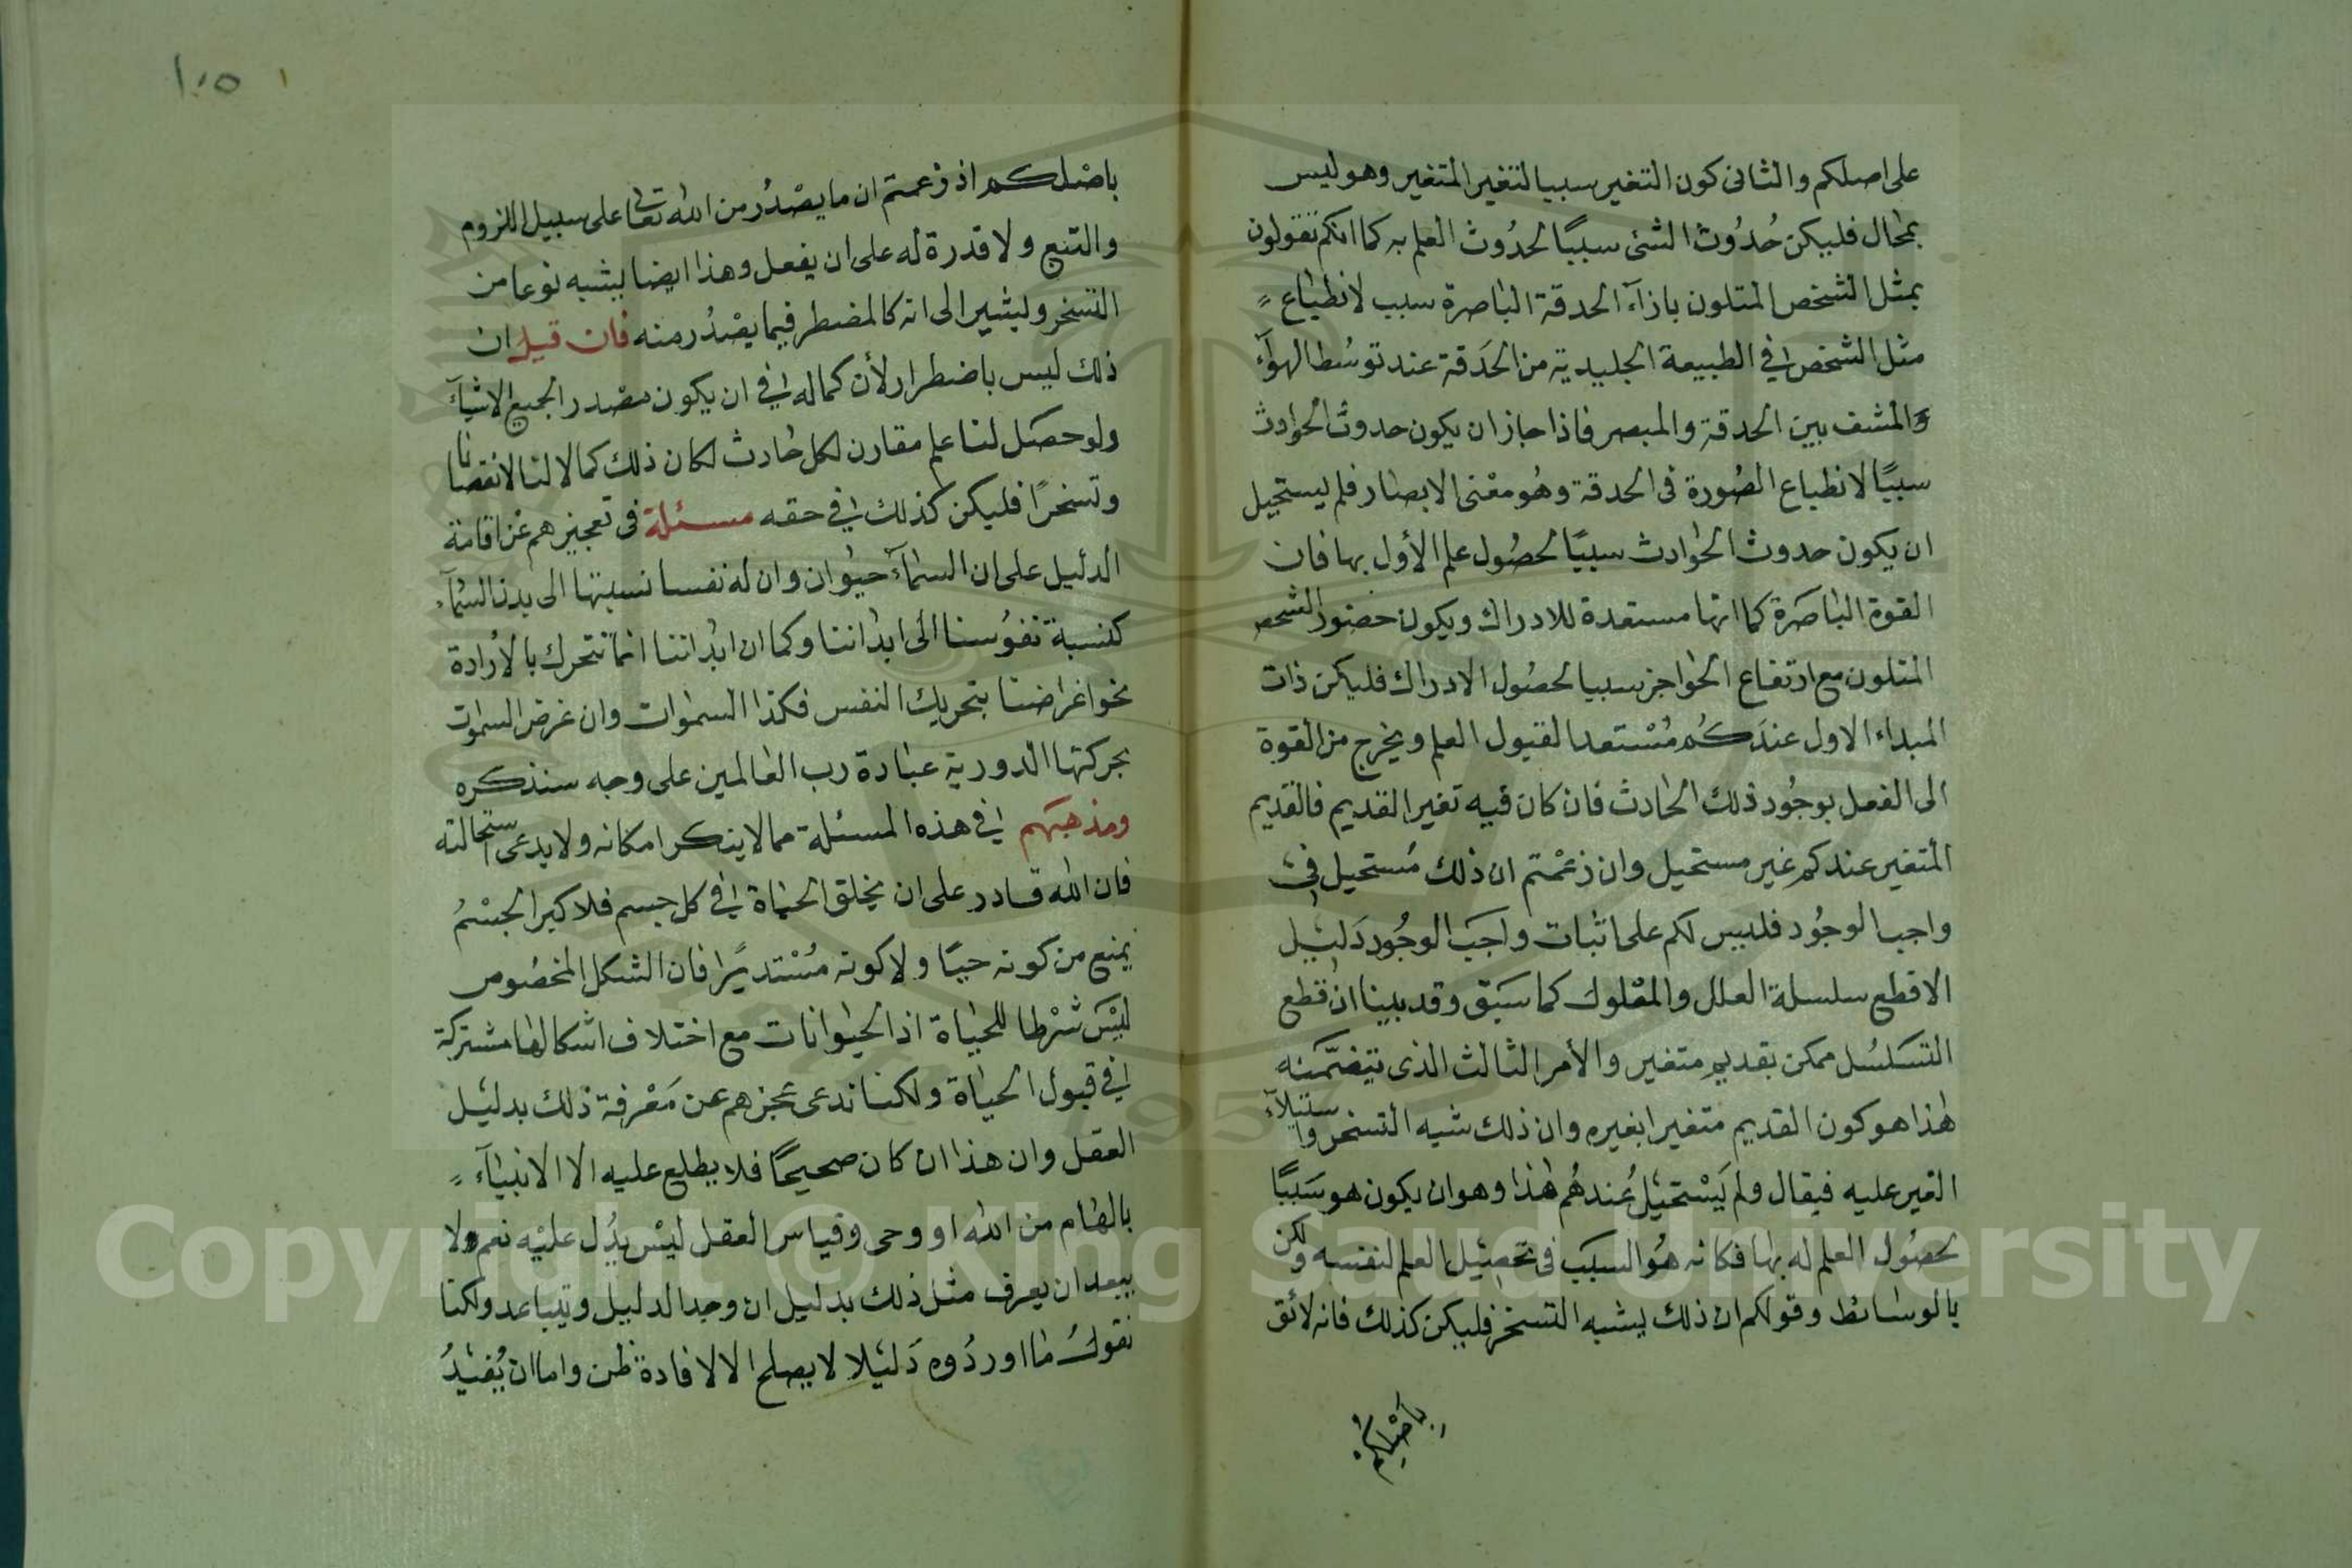 على اصلكم والثانى كون التغير سببا لتغير المتغير وهو ليس
بمحال فليكن حُدُوث الشئ سببًا لحدُوث العلم به كما انكم تقولون
بمثل الشخص المتلون بازآء الحدقة الباصرة سبب لانطباع
مثل الشخص في الطبيعة الجليدية من الحَدقة عند توسُط الهوآء
والمشف بين الحدقة والمبصر فاذا جاز ان يكون حدوث الحوادث
سببًا لانطباع الصُورة فى الحدقة وهُو معْنى الابصار فلم يستحيل
ان يكون حدوث الحوادث سببًا لحصُول علم الأول بها فان
القوة الباصَرة كما انها مستعدة للادراك ويكون حضور الشخص
المتلون مع ارتفاع الحواجز سببا لحصُول الادراك فليكن ذات
المبداء الاول عندَكُم مُسْتعدا لقبول العلم ويخرج من القوة
الى الفعل بوجُود ذلك الحادث فان كان فيه تغير القديم فالقديم
المتغير عندكم غير مستحيل وان زعمْتم ان ذلك مُستحيل في
واجب الوجُود فليس لكم على اثبات واجَب الوجُود دَليل
الا قطع سلسلة العلل والمعْلول كما سَبَق وقد بينا ان قطع
التسَلسُل ممكن بقديم متغير والأمر الثالث الذى يتضمّنه
هٰذا هو كون القديم متغيرا بغيره وان ذلك شبه التسخر واستيلآء
الغير عليه فيقال ولم يَسْتحيل عُندهُم هٰذا وهو ان يكون هو سَببًا
لحصُول العلم له بها فكانه هُو السبَب فى تحصيل العلم لنفسه ولكن
بالوسائط وقولكم ان ذلك يشبه التسخر فليكن كذلك فانه لائق
باصْلكم
١٠٥
باصْلكم اذ زعمتم ان ما يصْدُر من الله تعالى على سبيل اللزوم
والتبع ولا قدرة له على ان يفعل وهذا ايضا يشبه نوعا من
التسخر ويشير الى انه كالمضطر فيما يصْدُر منه فان قيل ان
ذلك ليس باضطرار لأن كماله في ان يكون مصْدر الجميع الاشيآء
ولو حصَل لنا علم مقارن لكل حادث لكان ذلك كمالا لنا لانقصانا
وتسخرًا فليكن كذلك في حقه مسئلة فى تعجيزهم عن اقامة
الدليل على ان السمآء حيوان وان له نفسا نسبتها الى بدن السمآء
كنسبة نفُوسنا الى ابداننا وكما ان ابداننا انما نتحرك بالأرادة
نحو اغراضنا بتحريك النفس فكذا السموات وان غرض السموات
بحركتها الدورية عبادة رب العالمين على وجه سنذكره
ومذهبَهم في هذه المسئلة مما لا ينكر امكانه ولا يدعى استحالته
فان الله قادر على ان يخلق الحياة في كل جسم فلا كبر الجسْمُ
يمنع من كونه حيًا ولا كونه مُسْتديرًا فان الشكل المخصُوص
ليْسَ شرْطا للحياة اذ الحيوانات مع اختلاف اشكالها مشتركة
في قبول الحياة ولكنا ندعى عجزهم عن مَعْرفة ذلك بدليل
العقل وان هذا ان كان صحيحًا فلا يطلع عليه الا الانبيآء
بالهام من الله او وحى وقياس العقل ليْس يدُل عليْه نعم ولا
يبعد ان يعرف مثل ذلك بدليل ان وجد الدليل وتباعد ولكنا
نقولُ ما اوردُوه دَليلا لا يصلح الا لافادة ظن واما ان يُفيدُ
Copyright © King Saud University
1957